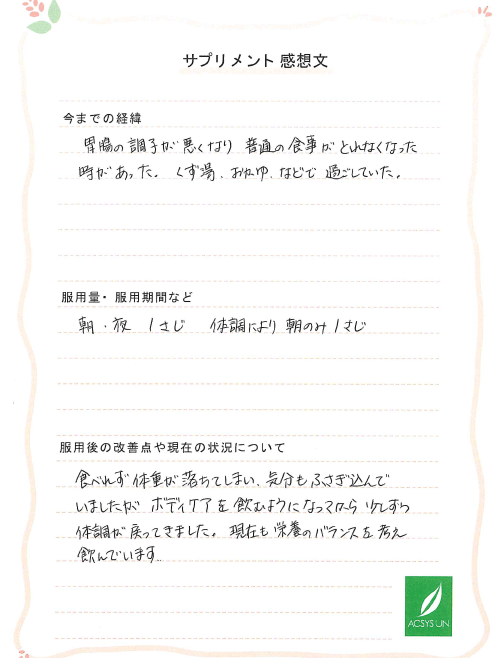 サプリメント 感想文
今までの経緯
胃腸の調子が悪くなり 普通の食事がとれなくなった
時があった。くず湯、おかゆ、などで過ごしていた。
服用量・服用期間など
朝・夜 1さじ 体調により朝のみ1さじ
服用後の改善点や現在の状況について
食べれず体重が落ちてしまい、気分もふさぎ込んで
いましたが ボディケアを飲むようになってから 少しずつ
体調が戻ってきました。現在も栄養のバランスを考え
飲んでいます。
ACSYS UN